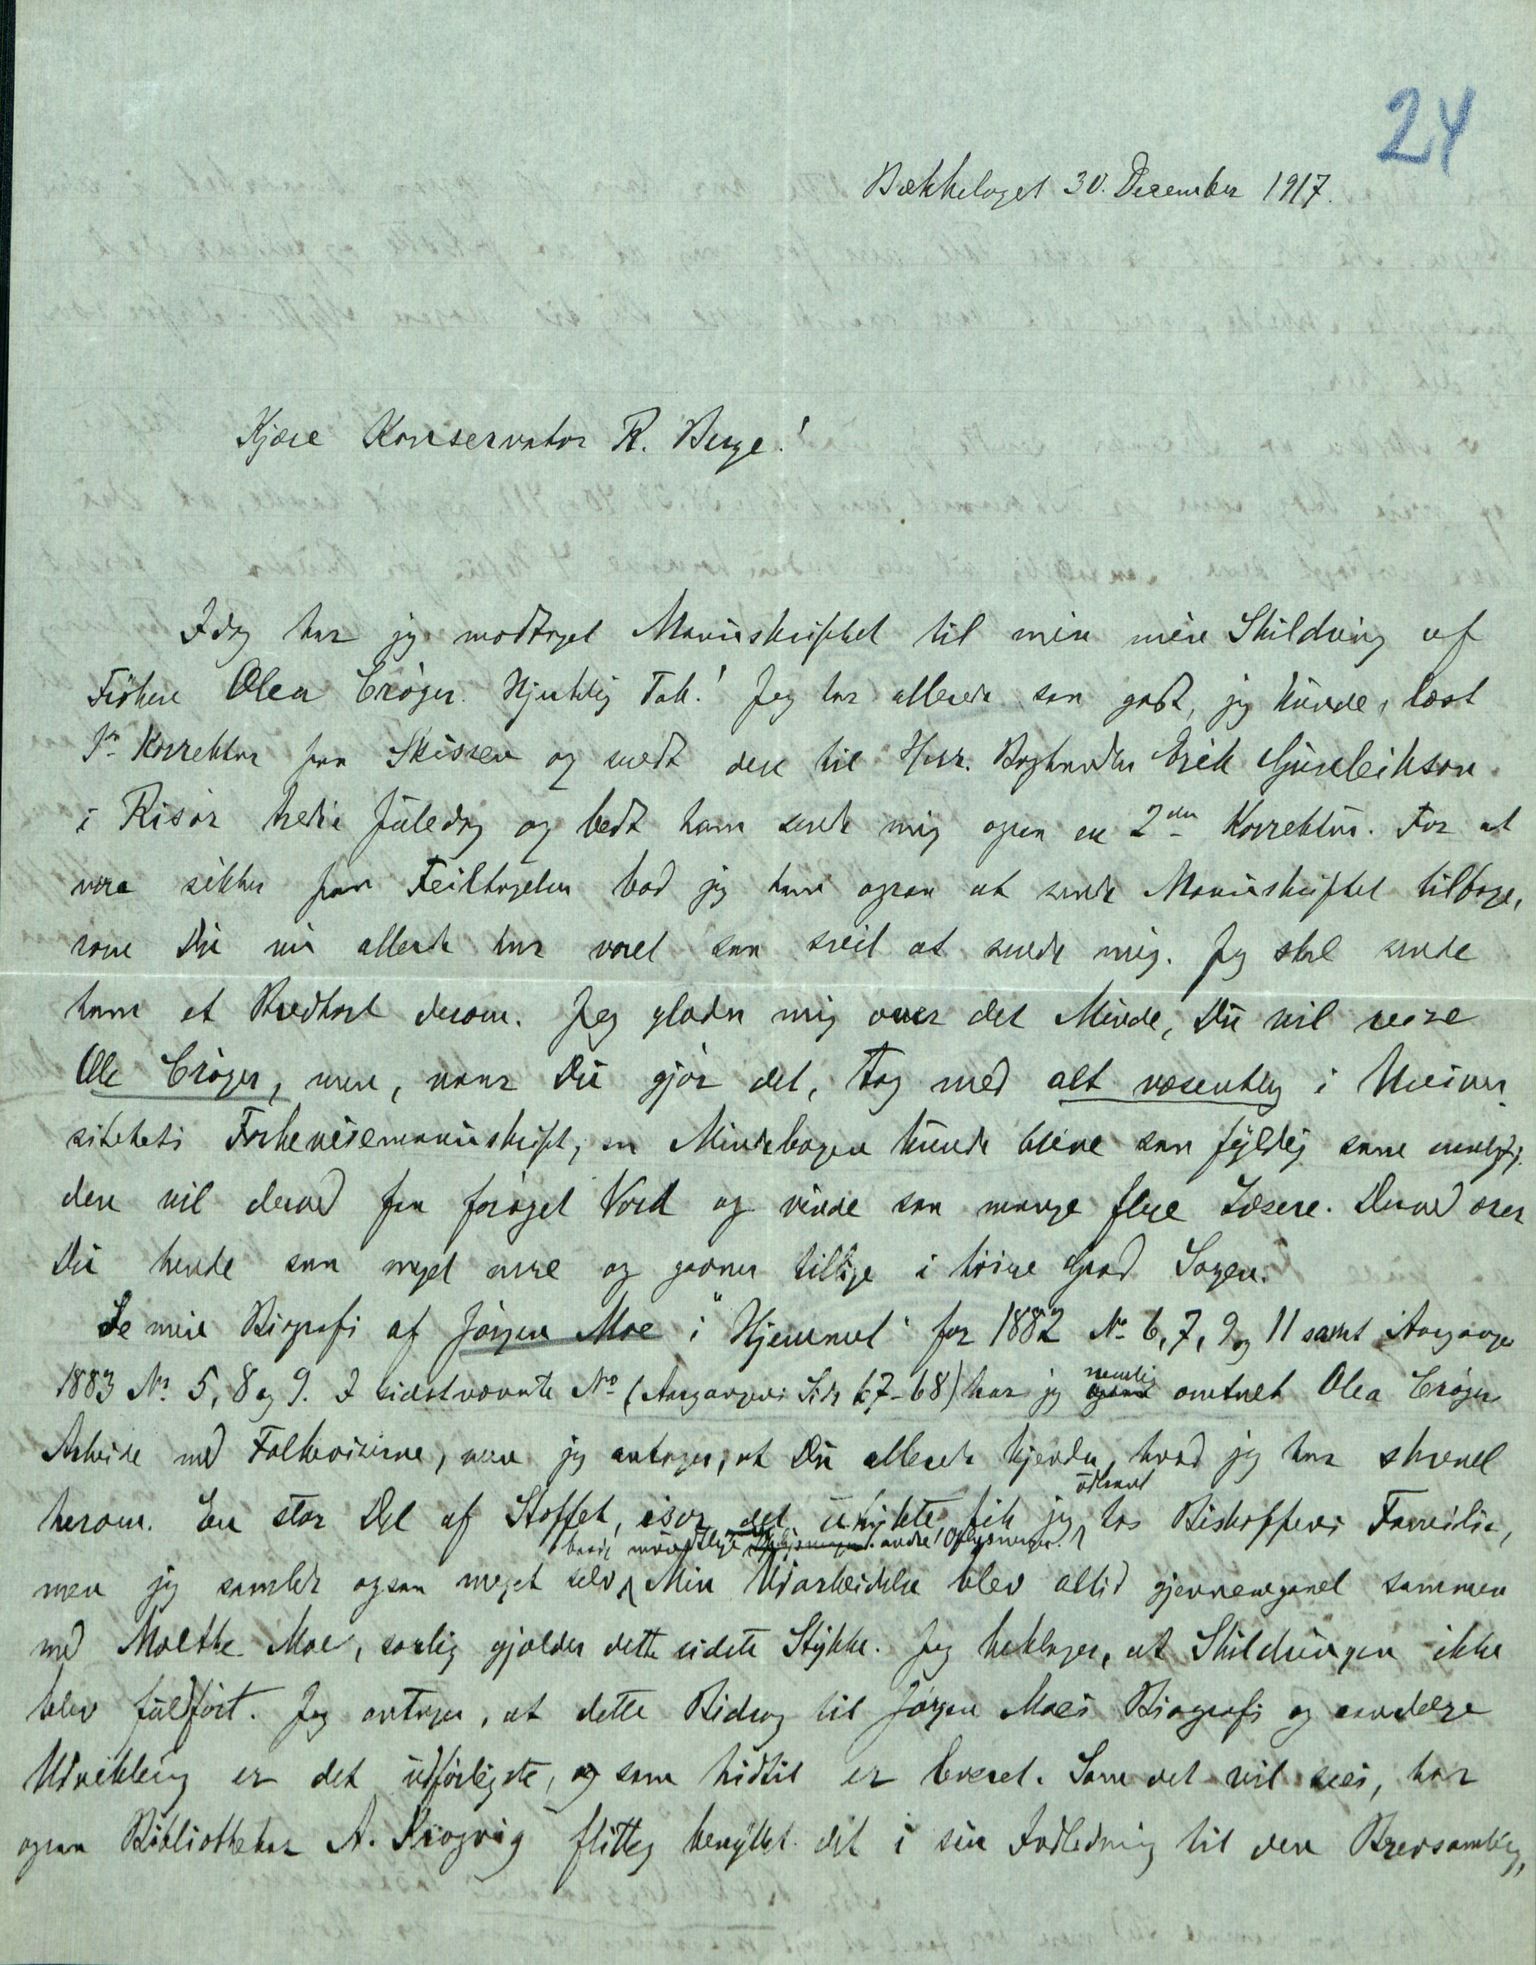 24
Bækkelaget 30. Desember 1917.
Kjære Konservator R. Berge!
Idag har jeg modtaget Manuskriptet til min mere Skildring af
Frøken Olea Crøger. Hjertelig Tak! Jeg har allerede saa godt, jeg kunde, læst
1ste Korrektur paa Skissen og sendt den til Herr. Boghandler Erik Gunleikson
i Risør tredie Juledag og bedt ham sende mig ogsaa en 2den Korrektur. For at
være sikker for Feiltagelser bad jeg ham ogsaa at sende Manuskriptet tilbage,
som Du nu allerede har været saa snil at sende mig. Jeg skal sende
ham et Brevkort derom. Jeg glæder mig over det Minde, Du vil reise
Ole Crøger, men, naar Du gjør det, tag med alt væsentlig i Univer
sitetets Folkevisemanuskript, saa Mindebogen kunde blive saa fyldig som muligt;
den vil derved faa forøget Værd og vinde saa mange flere Læsere. Derved ærer
Du hende saa meget mere og gavner tillige i høiere Grad Sagen.
Se min Biografi af Jørgen Moe i "Hjemmet" for 1882 No 6, 7, 9 og 11 samt Aargangen
1883 No 5, 8 og 9. I sidstnævnte No (Aargangens Side 67-68) har jeg nemlig omtalt Olea Crøgers
Arbeide med Folkeviserne, men jeg antager, at Du allerede kjender, hvad jeg har skrevet
herom. En stor Del af Stoffet, især det utrykte fik jeg udlaant hos Bishoppens Familie,
men jeg samlede ogsaa meget selv baade mundtlige andre Oplysninger. Min Udarbeidelse blev altid gjennemgaaet sammen
med Moltke Moe, særlig gjælder dette sidste Stykke. Jeg beklager, at Skildringen ikke
blev fuldført. Jeg antager, at dette Bidrag til Jørgen Moes Biografi og aandelige
Udvikling er det udførligste, som hidtil er leveret. Som det vil sees, har
ogsaa Bibliothekar A. Krogvig flittig benyttet det i sin Indledning til den Brevsamling,